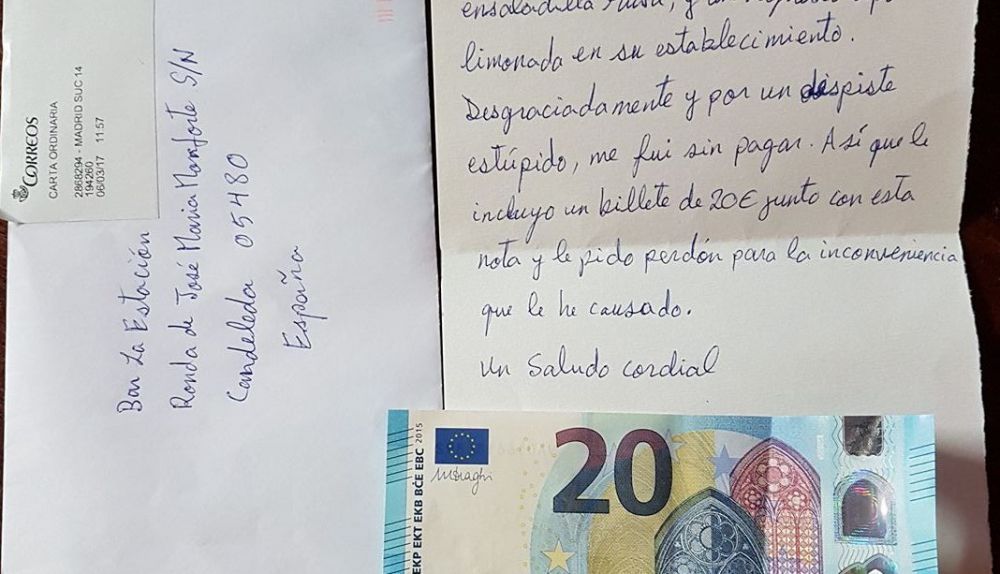 CORREOS
CARTA ORDINARIA
2868294 - MADRID SUC 14
194260
06/03/17 11:57
Bar La Estación
Ronda de José Maria Monforte S/N
Candeleda 05480
España
ensaladilla rusa, y un
limonada en su establecimiento.
Desgraciadamente y por un despiste
estúpido, me fui sin pagar. Así que le
incluyo un billete de 20€ junto con esta
nota y le pido perdón para la inconveniencia
que le he causado.
Un Saludo cordial
EKP EKT EKB BCE EBC 2015
20